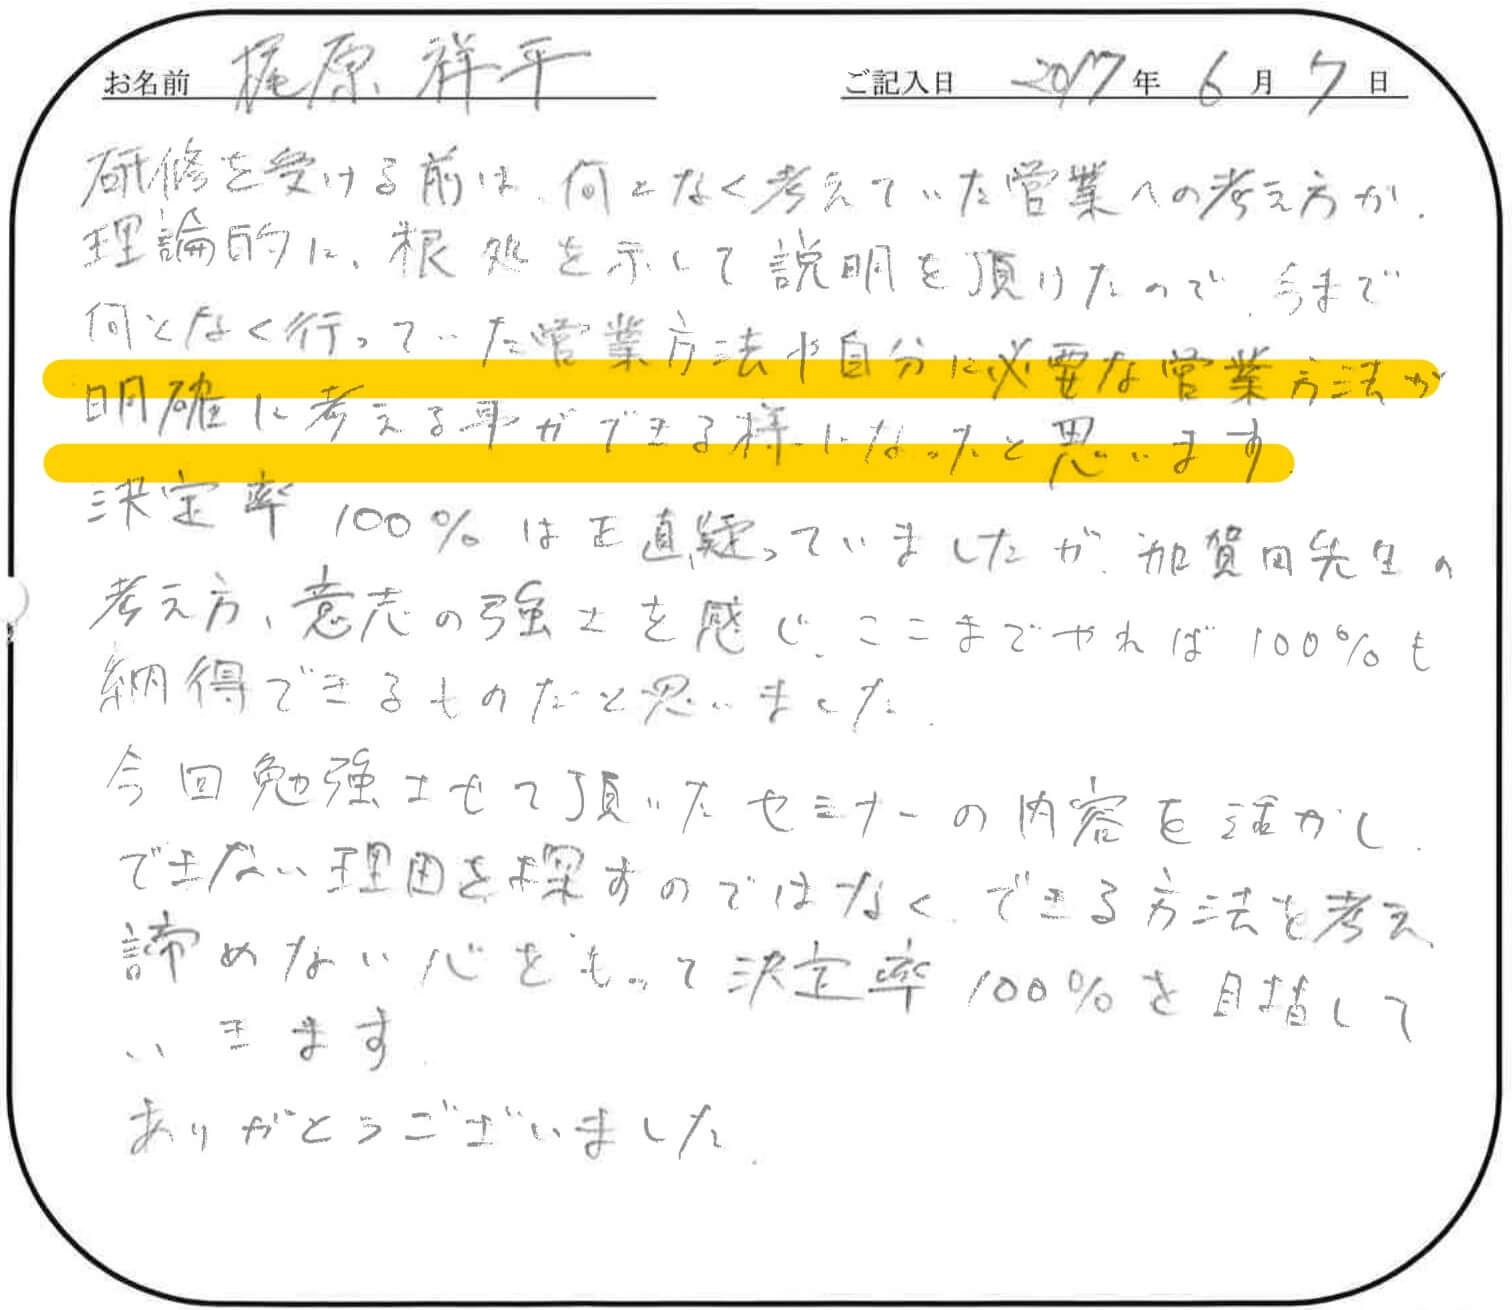 お名前 梶原 祥平 ご記入日 2017年 6月 7日
研修を受ける前は、何となく考えていた営業への考え方が、
理論的に、根処を示して説明を頂けたので、今まで
何となく行っていた営業方法や自分に必要な営業方法が
明確に考える事ができる様になったと思います。
決定率 100%は正直疑っていましたが、加賀田先生の
考え方、意志の強さを感じ、ここまでやれば100%も
納得できるものだと思いました。
今回勉強させて頂いたセミナーの内容を活かし、
できない理由を探すのではなく、できる方法を考え、
諦めない心をもって決定率100%を目指して
いきます。
ありがとうございました。